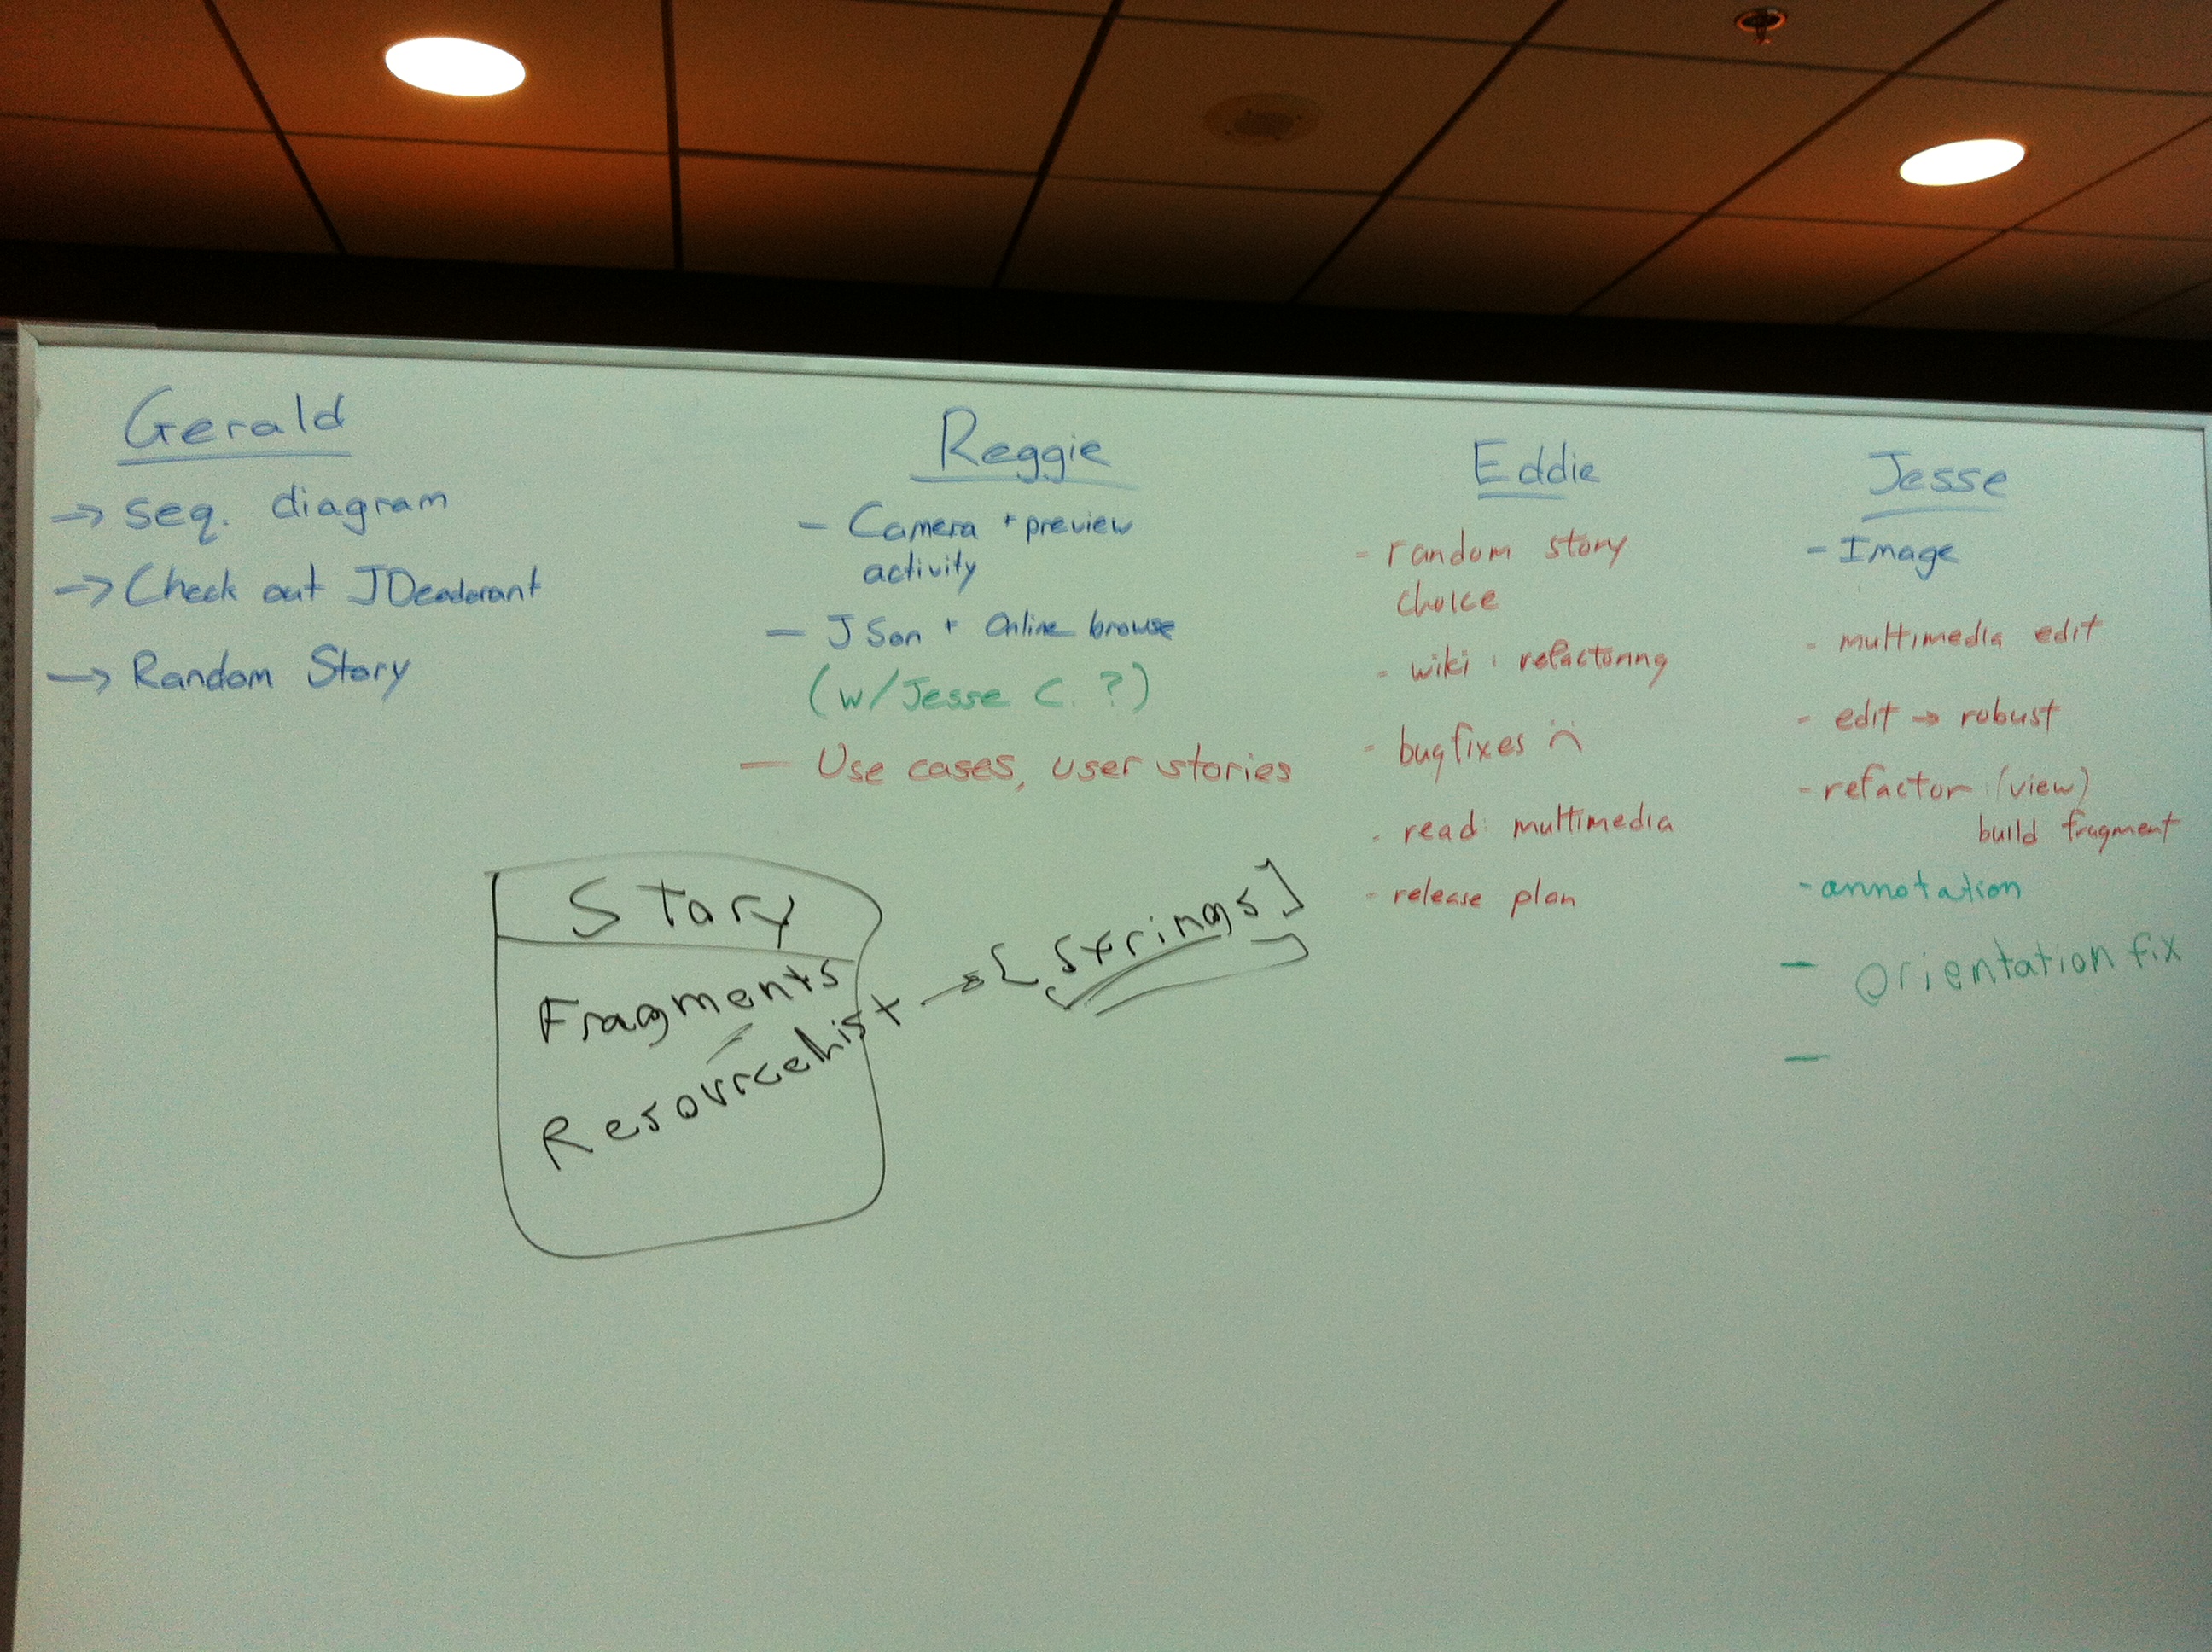 Gerald
→ seq. diagram
→ Check out JDeodorant
→ Random Story
Reggie
- Camera + preview
activity
- JSon + Online browse
(w/Jesse C. ?)
- Use cases, user stories
Eddie
- random story
choice
- wiki : refactoring
- bugfixes :(
- read: multimedia
- release plan
Jesse
- Image
- multimedia edit
- edit → robust
- refactor: (view)
build fragment
- annotation
- orientation fix
-
Story
Fragments
ResourceList → [Strings]